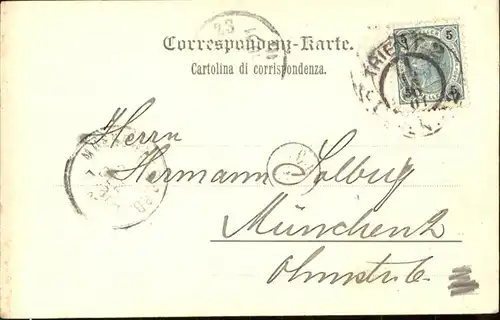 Correspondenz-Karte.
Cartolina di corrispondenza.
5 5
TRIENT 2
23
Herrn
Hermann Solbrig
München 2
Ohmstr. 6